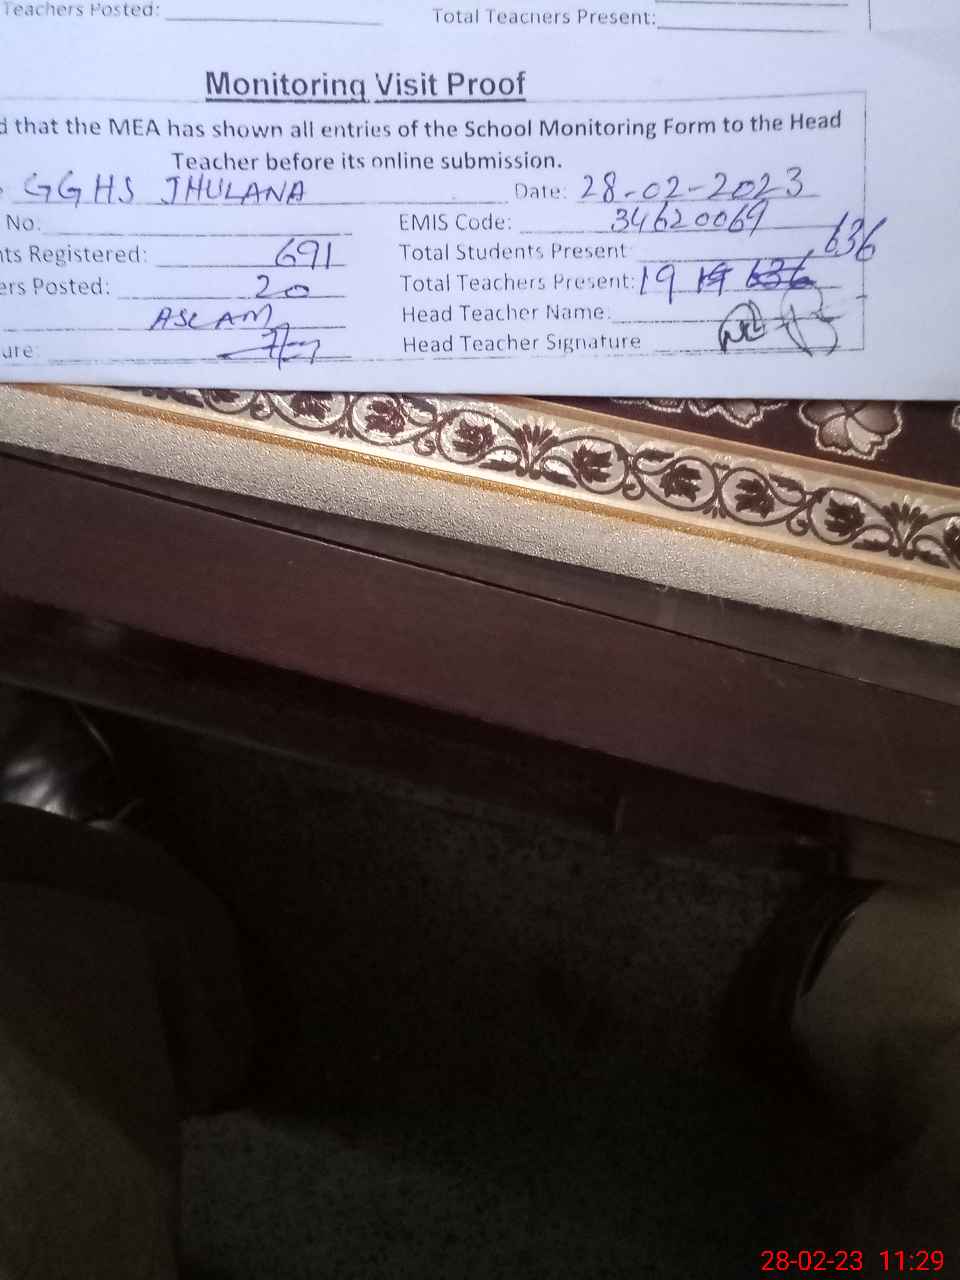 Teachers Posted: Total Teachers Present:
Monitoring Visit Proof
d that the MEA has shown all entries of the School Monitoring Form to the Head
Teacher before its online submission.
GGHS JHULANA Date: 28-02-2023
No. EMIS Code: 34620069
nts Registered: 691 Total Students Present 636
ers Posted: 20 Total Teachers Present: 19 19 636
ASLAM Head Teacher Name:
ure: Head Teacher Signature
28-02-23 11:29